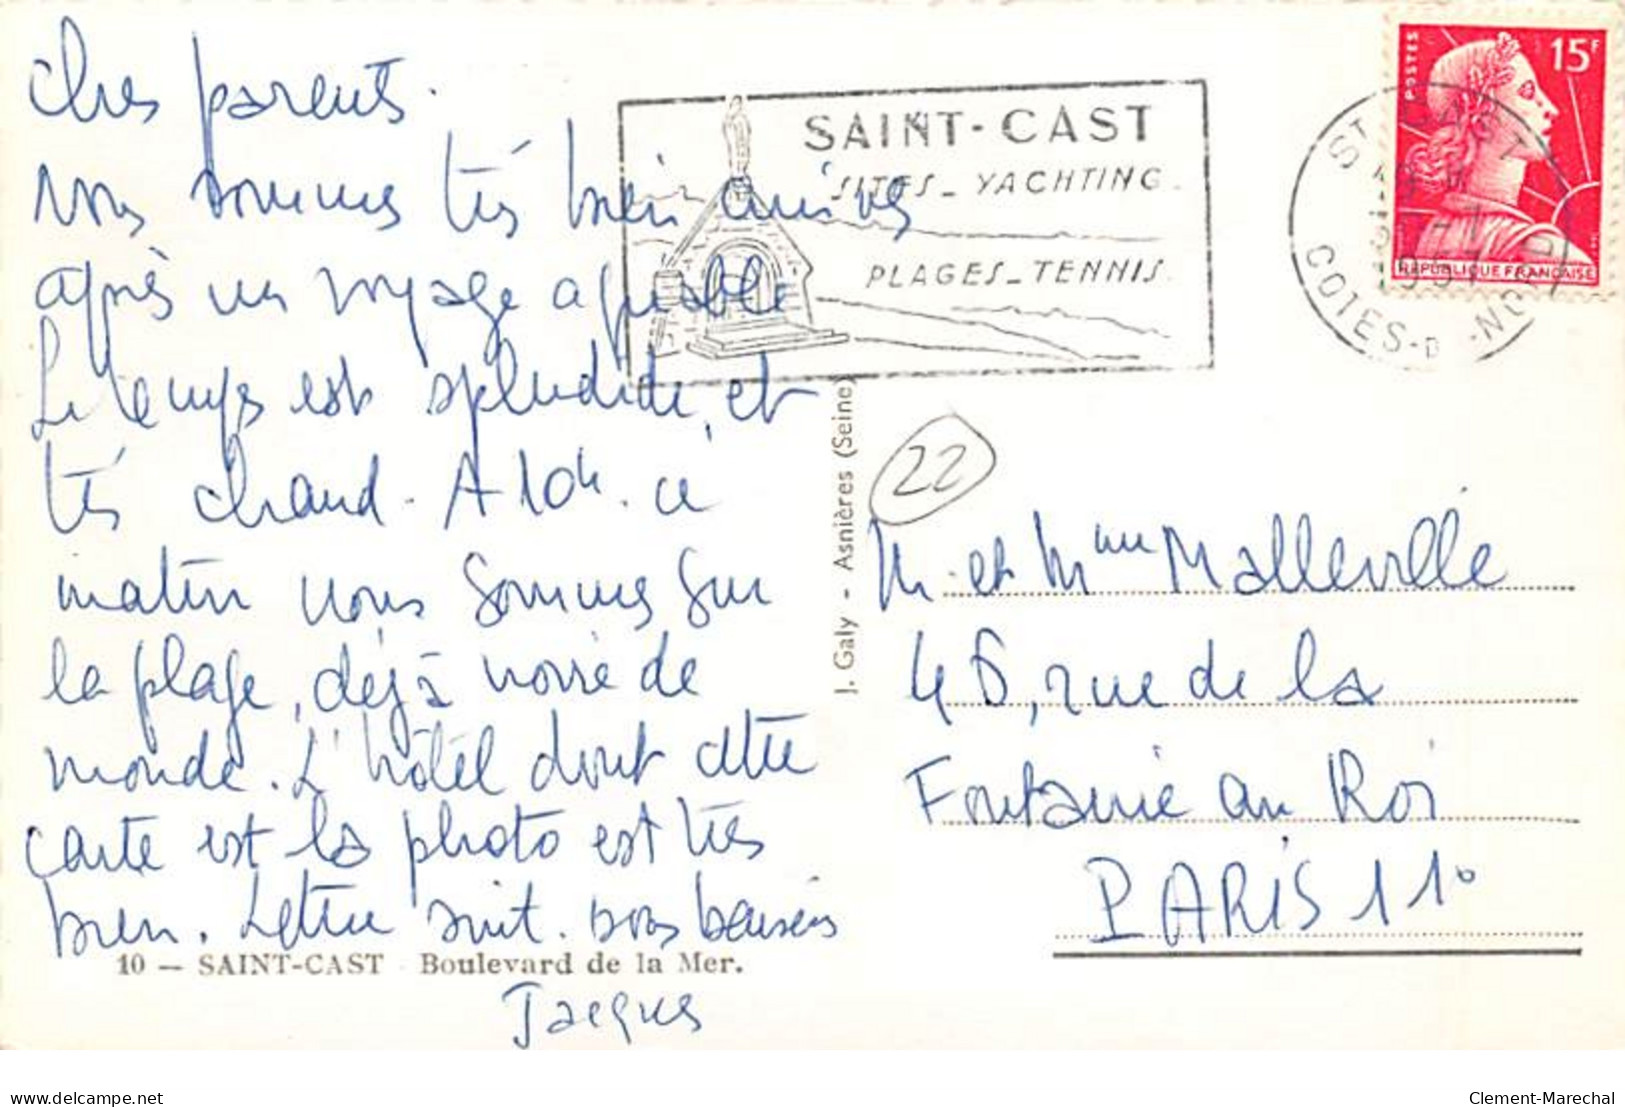 Chers parents.
nous sommes très bien arrivés
après un voyage agréable
Le temps est splendide, et
très chaud. A 10h. ce
matin nous sommes sur
la plage, déjà noire de
monde. L'hôtel dont cette
carte est la photo est très
bien. Lettre suit. bons baisers
Jacques
10 — SAINT-CAST Boulevard de la Mer.
J. Galy - Asnières (Seine)
SAINT-CAST
SITES_ YACHTING_
PLAGES_TENNIS.
ST CAST
COTES-DU-NORD
POSTES
15F
REPUBLIQUE FRANÇAISE
22
M. et Mme Malleville
46, rue de la
Fontaine au Roi
PARIS 11°
www.delcampe.net
Clement-Marechal